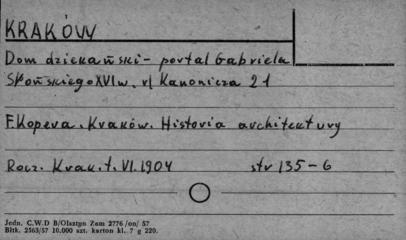 KRAKÓW
Dom dziekański - portal Gabriela
Słońskiego XVI w. ul Kanonicza 21
F. Kopera. Kraków. Historia architektury
Rocz. Krak. t. VI. 1904 str 135-6
Jedn. C.W.D B/Olsztyn Zam 2776 /on/ 57
Bltk. 2563/57 10.000 szt. karton kl. 7 g 220.